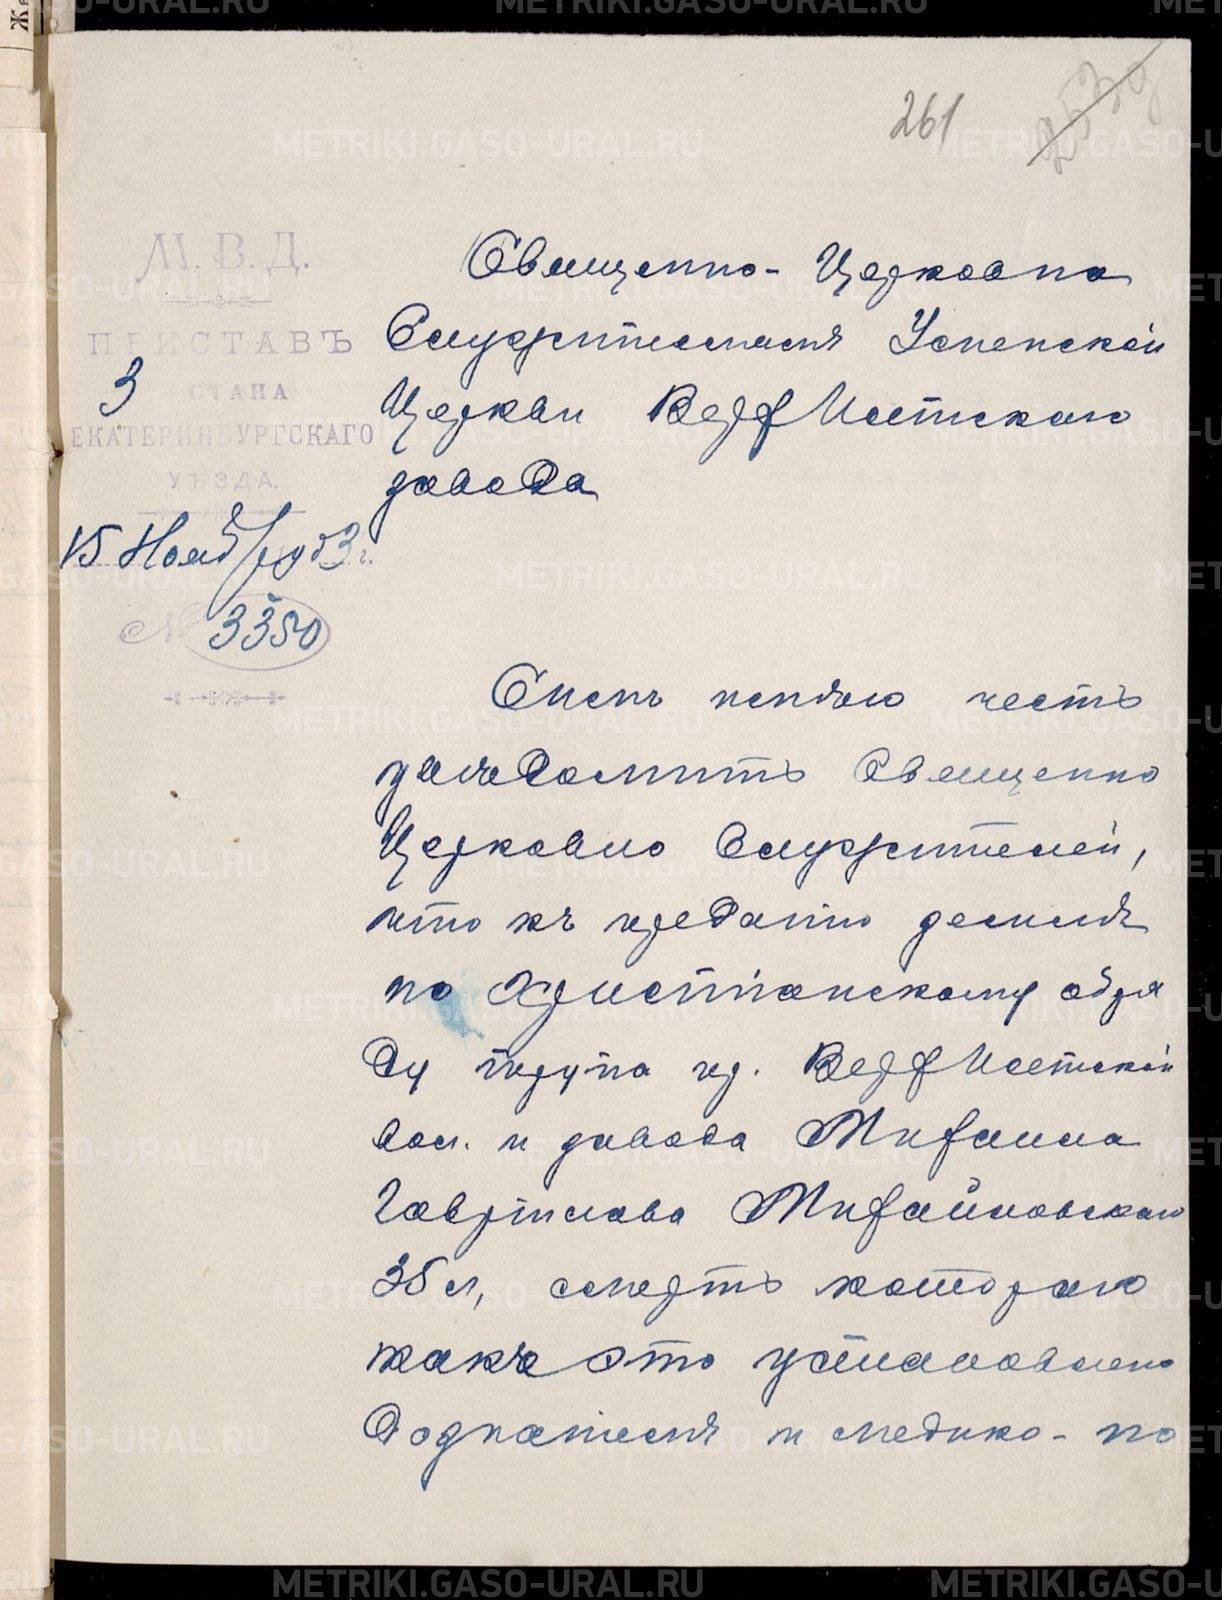 261
М. В. Д.
ПРИСТАВЪ
3 СТАНА
ЕКАТЕРИНБУРГСКАГО
УѢЗДА.
15 Ноября 1903 г.
№ 3350
Священно-Церковно
Служителямъ Успенской
Церкви Верх Исетскаго
завода
Симъ имѣю честь
увѣдомить Священно
Церковно Служителей,
что къ преданію землѣ
по Христіанскому обря
ду трупа кр. Верх Исетской
вол. и завода Михаила
Гаврилова Михайловскаго
35 л, смерть котораго
какъ это установлено
дознаніемъ и медико-по
METRIKI.GASO-URAL.RU